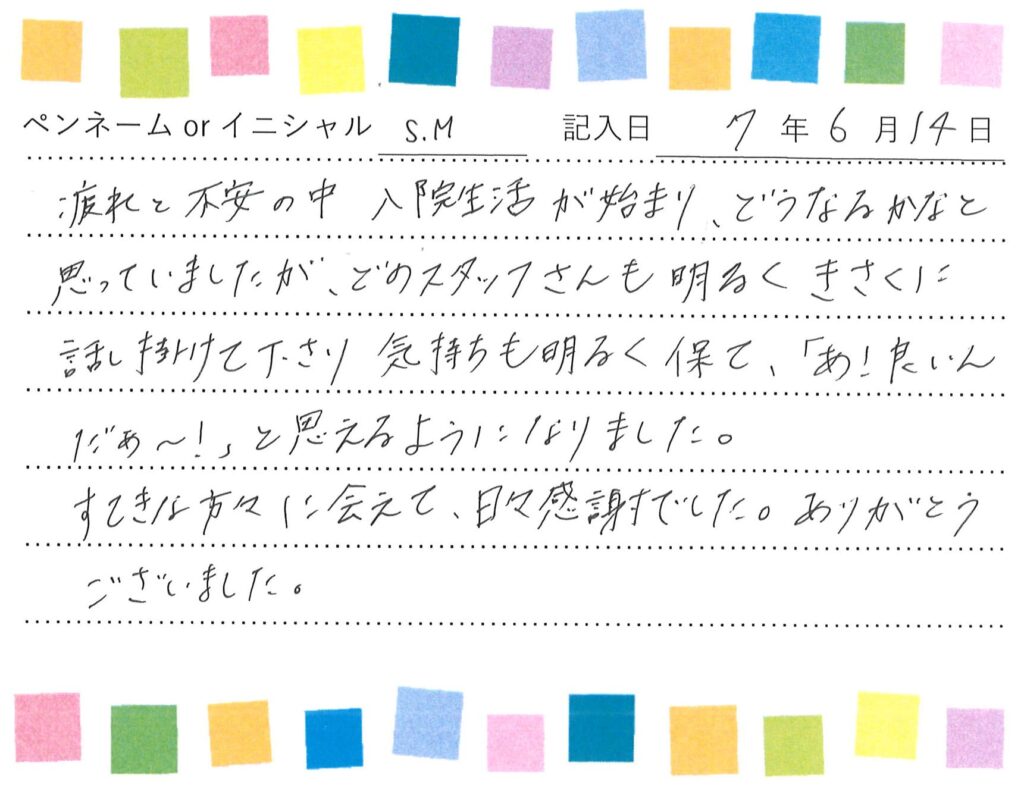 ペンネーム or イニシャル S.M 記入日 7年6月14日
疲れと不安の中 入院生活が始まり、どうなるかなと
思っていましたが、どのスタッフさんも明るくきさくに
話し掛けて下さり 気持ちも明るく保て、「あ!良いん
だぁ〜!」と思えるようになりました。
すてきな方々に会えて、日々感謝でした。ありがとう
ございました。